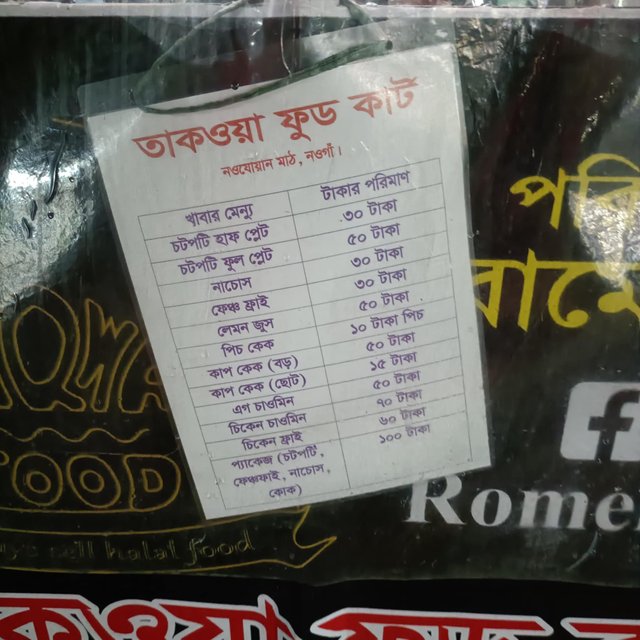 তাকওয়া ফুড কার্ট
নওযোয়ান মাঠ, নওগাঁ।
খাবার মেন্যু টাকার পরিমাণ
চটপটি হাফ প্লেট ৩০ টাকা
চটপটি ফুল প্লেট ৫০ টাকা
নাচোস ৩০ টাকা
ফেঞ্চ ফ্রাই ৩০ টাকা
লেমন জুস ৫০ টাকা
পিচ কেক ১০ টাকা পিচ
কাপ কেক (বড়) ৫০ টাকা
কাপ কেক (ছোট) ১৫ টাকা
এগ চাওমিন ৫০ টাকা
চিকেন চাওমিন ৭০ টাকা
চিকেন ফ্রাই ৬০ টাকা
প্যাকেজ (চটপটি, ১০০ টাকা
ফেঞ্চফাই, নাচোস,
কোক)
FOOD
sell halal food